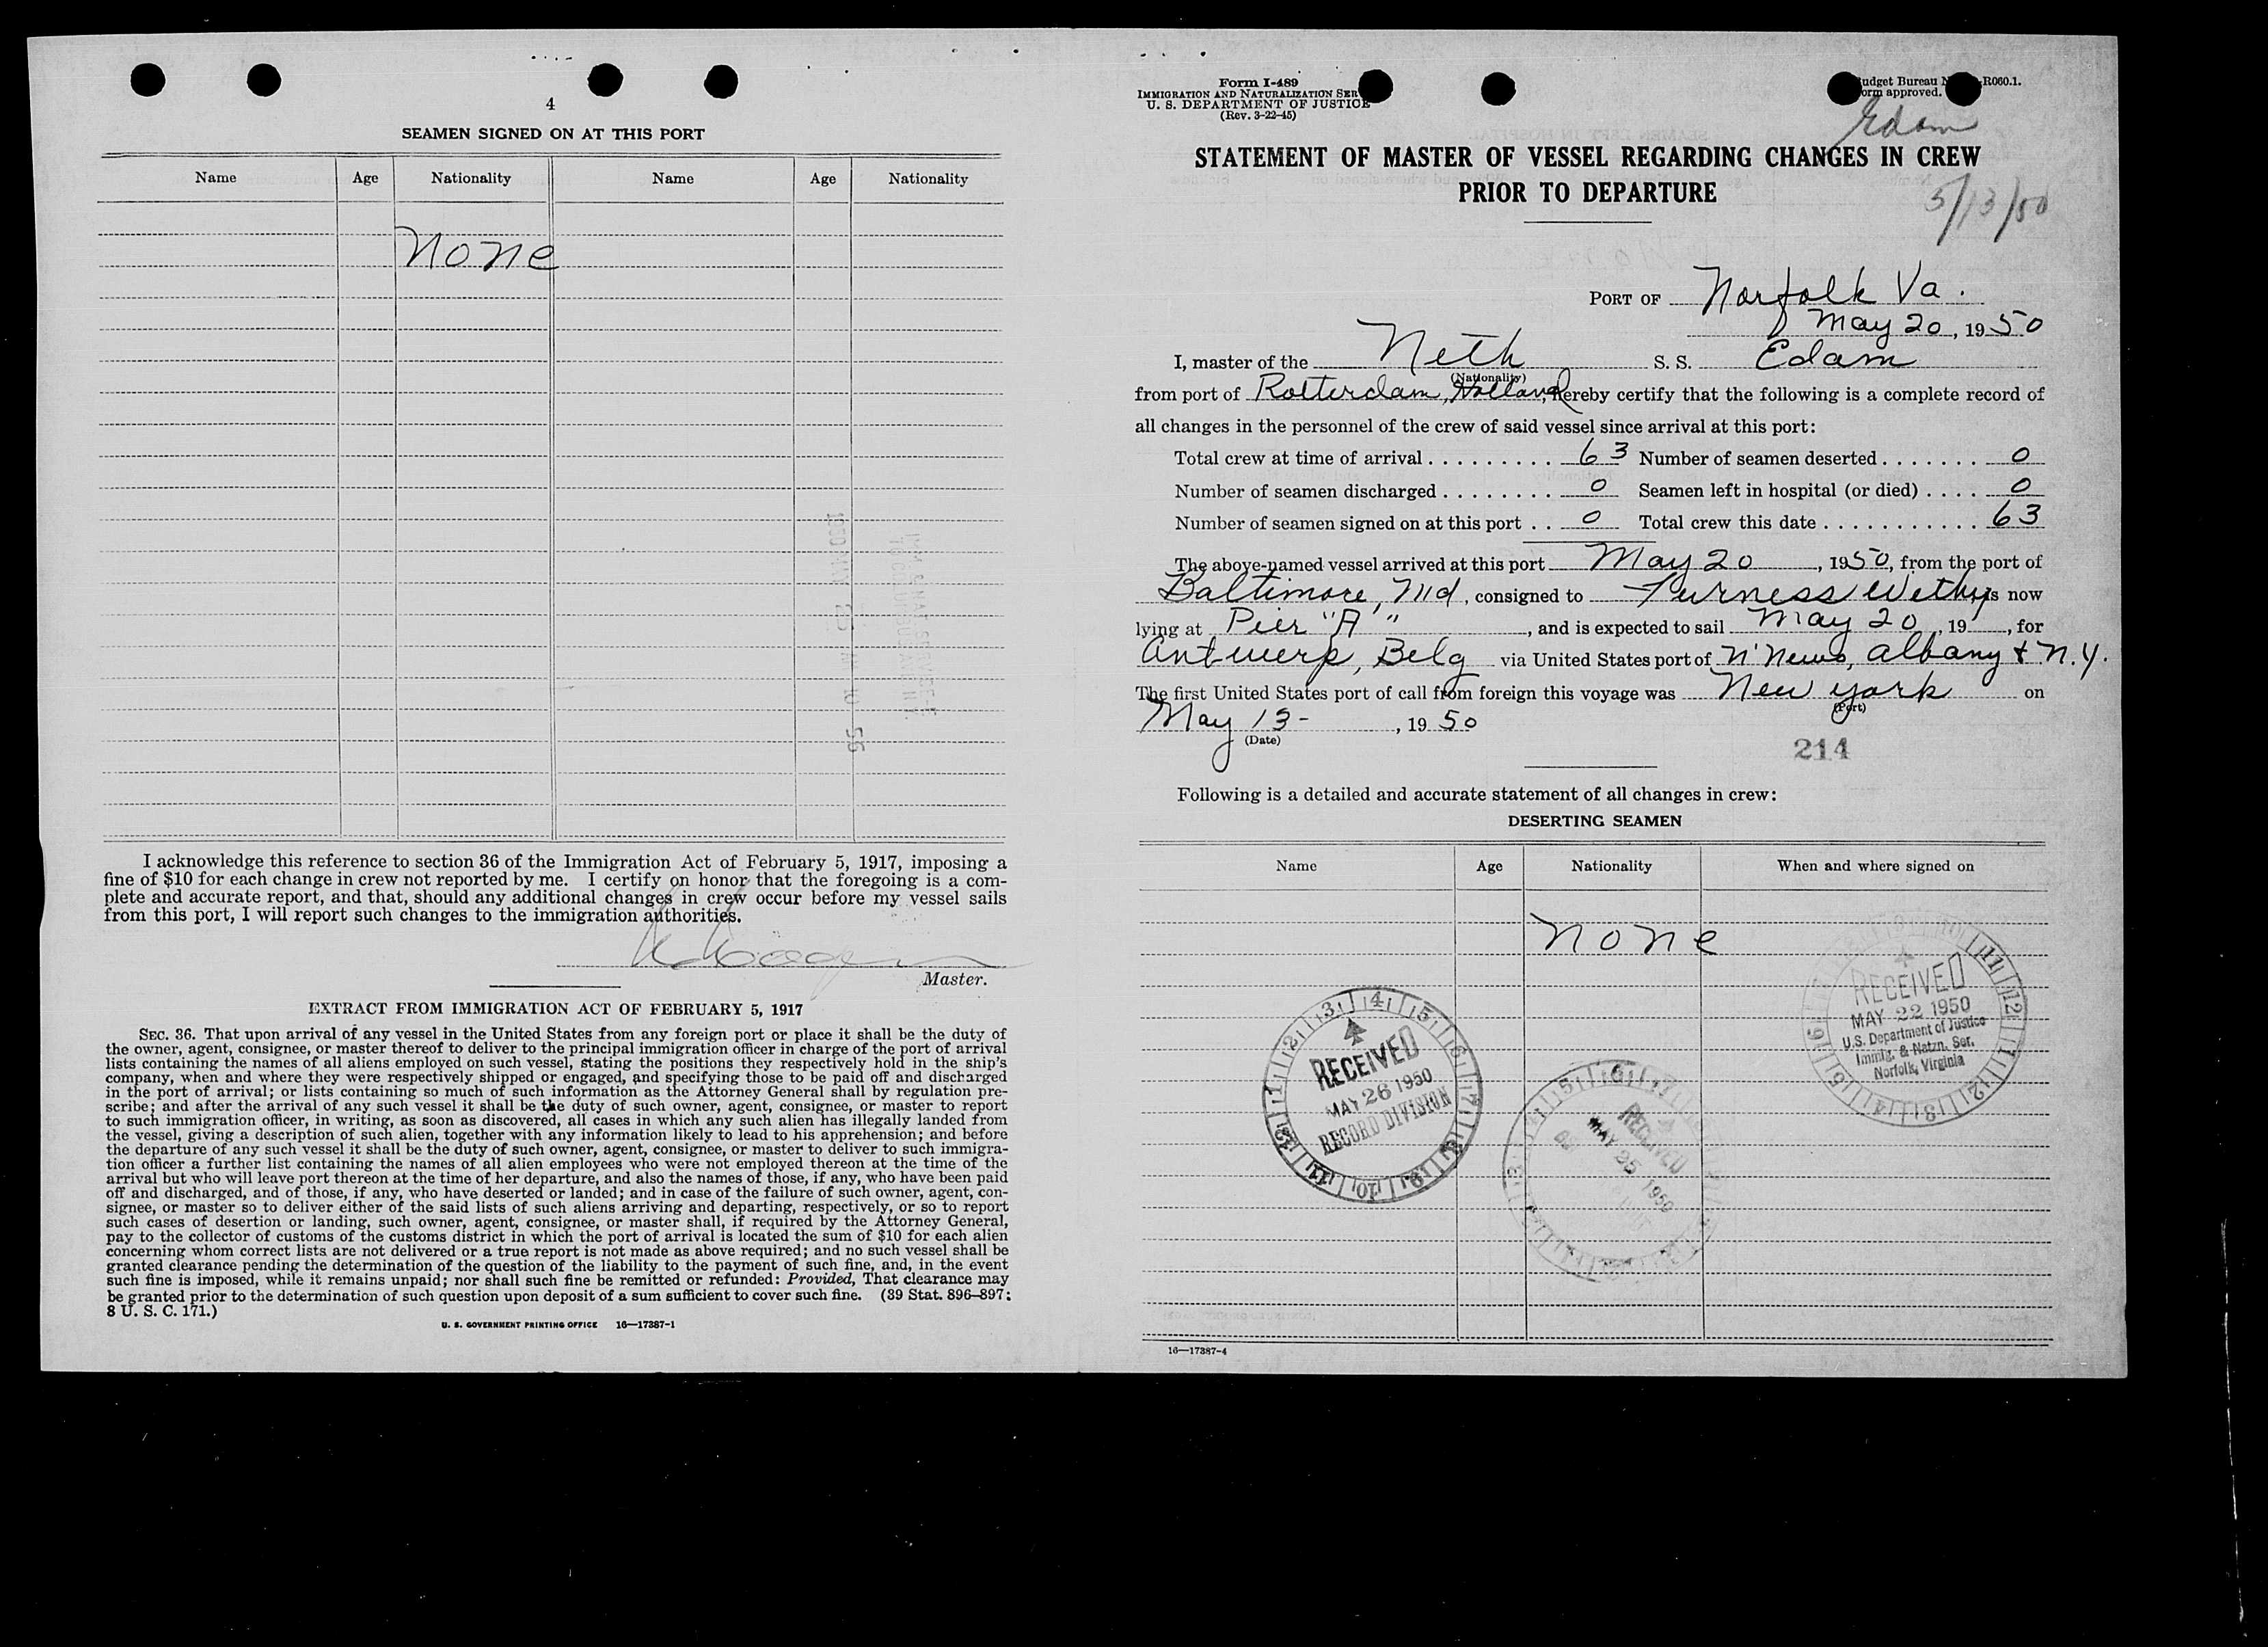 4
SEAMEN SIGNED ON AT THIS PORT
Name Age Nationality Name Age Nationality
None
I acknowledge this reference to section 36 of the Immigration Act of February 5, 1917, imposing a
fine of $10 for each change in crew not reported by me. I certify on honor that the foregoing is a com-
plete and accurate report, and that, should any additional changes in crew occur before my vessel sails
from this port, I will report such changes to the immigration authorities.
Master.
EXTRACT FROM IMMIGRATION ACT OF FEBRUARY 5, 1917
SEC. 36. That upon arrival of any vessel in the United States from any foreign port or place it shall be the duty of
the owner, agent, consignee, or master thereof to deliver to the principal immigration officer in charge of the port of arrival
lists containing the names of all aliens employed on such vessel, stating the positions they respectively hold in the ship's
company, when and where they were respectively shipped or engaged, and specifying those to be paid off and discharged
in the port of arrival; or lists containing so much of such information as the Attorney General shall by regulation pre-
scribe; and after the arrival of any such vessel it shall be the duty of such owner, agent, consignee, or master to report
to such immigration officer, in writing, as soon as discovered, all cases in which any such alien has illegally landed from
the vessel, giving a description of such alien, together with any information likely to lead to his apprehension; and before
the departure of any such vessel it shall be the duty of such owner, agent, consignee, or master to deliver to such immigra-
tion officer a further list containing the names of all alien employees who were not employed thereon at the time of the
arrival but who will leave port thereon at the time of her departure, and also the names of those, if any, who have been paid
off and discharged, and of those, if any, who have deserted or landed; and in case of the failure of such owner, agent, con-
signee, or master so to deliver either of the said lists of such aliens arriving and departing, respectively, or so to report
such cases of desertion or landing, such owner, agent, consignee, or master shall, if required by the Attorney General,
pay to the collector of customs of the customs district in which the port of arrival is located the sum of $10 for each alien
concerning whom correct lists are not delivered or a true report is not made as above required; and no such vessel shall be
granted clearance pending the determination of the question of the liability to the payment of such fine, and, in the event
such fine is imposed, while it remains unpaid; nor shall such fine be remitted or refunded: Provided, That clearance may
be granted prior to the determination of such question upon deposit of a sum sufficient to cover such fine. (39 Stat. 896–897;
8 U. S. C. 171.)
U. S. GOVERNMENT PRINTING OFFICE 16—17387-1
Form I-489
IMMIGRATION AND NATURALIZATION SER
U. S. DEPARTMENT OF JUSTICE
(Rev. 3-22-45)
udget Bureau N -R060.1.
orm approved.
Edam
STATEMENT OF MASTER OF VESSEL REGARDING CHANGES IN CREW
PRIOR TO DEPARTURE
5/13/50
PORT OF Norfolk Va.
May 20, 1950
I, master of the Neth S. S. Edam
(Nationality)
from port of Rotterdam, Holland, hereby certify that the following is a complete record of
all changes in the personnel of the crew of said vessel since arrival at this port:
Total crew at time of arrival . . . . . . . . . . 63 Number of seamen deserted . . . . . . . 0
Number of seamen discharged . . . . . . . . 0 Seamen left in hospital (or died) . . . . 0
Number of seamen signed on at this port . . 0 Total crew this date . . . . . . . . . . . . 63
The above-named vessel arrived at this port May 20, 1950, from the port of
Baltimore, Md, consigned to Furness Withy, is now
lying at Pier "A", and is expected to sail May 20, 19 , for
Antwerp, Belg via United States port of N'News, Albany & N.Y.
The first United States port of call from foreign this voyage was New York on
(Port)
May 13-, 1950
(Date)
214
Following is a detailed and accurate statement of all changes in crew:
DESERTING SEAMEN
Name Age Nationality When and where signed on
None
RECEIVED
MAY 22 1950
U.S. Department of Justice
Immig. & Natzn. Ser.
Norfolk, Virginia
RECEIVED
MAY 26 1950
RECORD DIVISION
RECEIVED
MAY 25 1950
16—17387-4